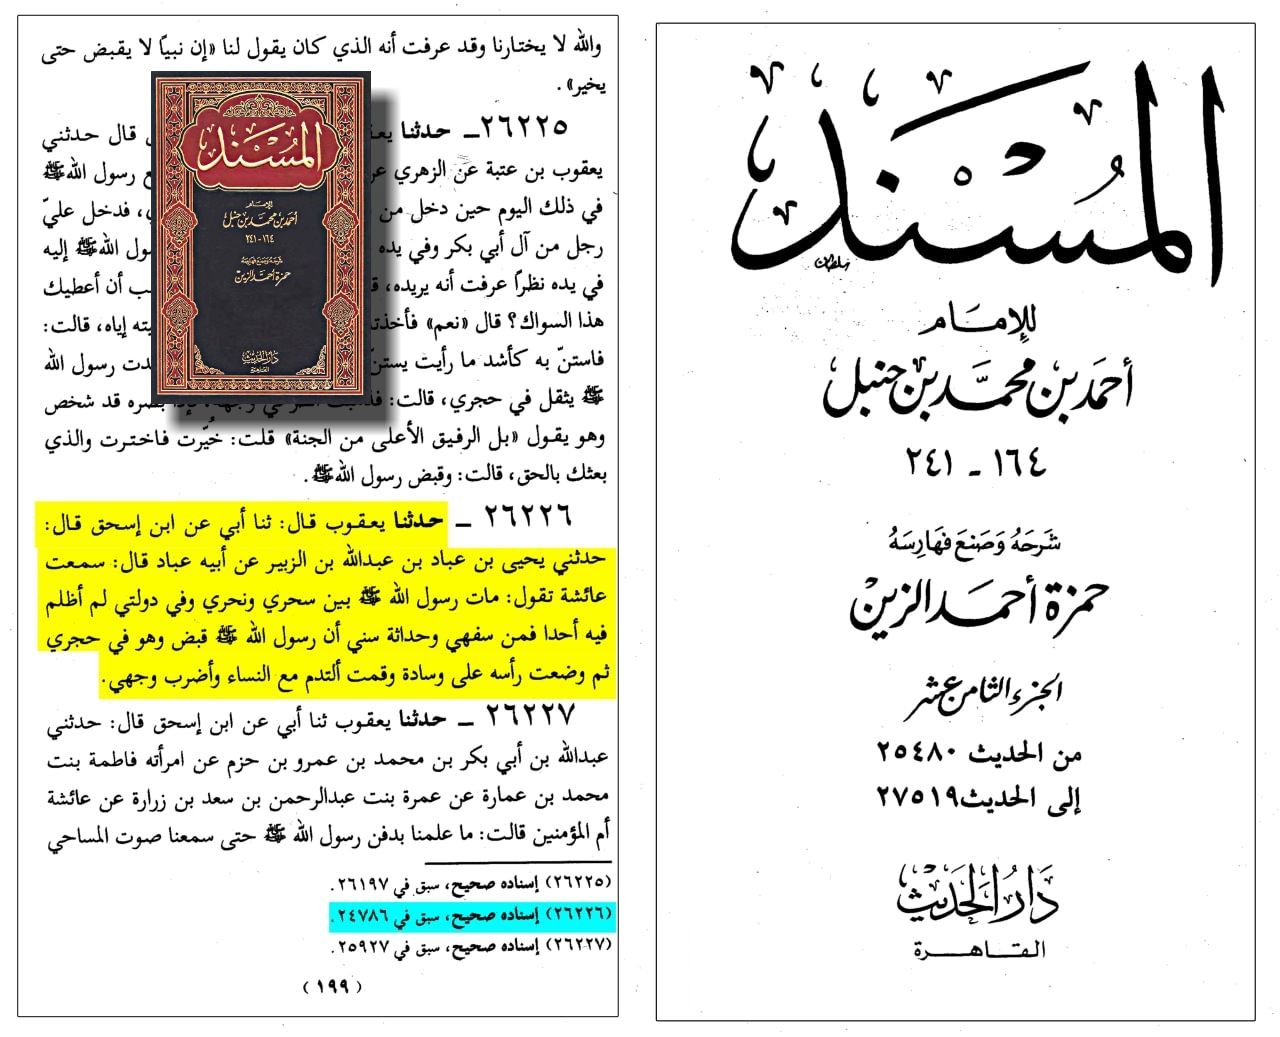 والله لا يختارنا وقد عرفت أنه الذي كان يقول لنا «إن نبياً لا يقبض حتى
يخير» .
٢٦٢٢٥ـ حدثنا قال حدثني
يعقوب بن عتبة عن الزهري رسول الله ﷺ
في ذلك اليوم حين دخل فدخل عليّ
رجل من آل أبي بكر وفي يده الله ﷺ إليه
في يده نظراً عرفت أنه يريده، أن أعطيك
هذا السواك؟ قال «نعم» إياه، قالت:
فاستنّ به كأشد ما رأيت رسول الله
ﷺ يثقل في حجري، قالت: قد شخص
وهو يقول «بل الرفيق الأعلى من الجنة» قلت: خُيّرت فاخترت والذي
بعثك بالحق، قالت: وقبض رسول الله ﷺ .
٢٦٢٢٦ ـ حدثنا يعقوب قال: ثنا أبي عن ابن إسحق قال:
حدثني يحيى بن عباد بن عبدالله بن الزبير عن أبيه عباد قال: سمعت
عائشة تقول: مات رسول الله ﷺ بين سحري ونحري وفي دولتي لم أظلم
فيه أحدا فمن سفهي وحداثة سني أن رسول الله ﷺ قبض وهو في حجري
ثم وضعت رأسه على وسادة وقمت ألتدم مع النساء وأضرب وجهي.
٢٦٢٢٧ ـ حدثنا يعقوب ثنا أبي عن ابن إسحق قال: حدثني
عبدالله بن أبي بكر بن محمد بن عمرو بن حزم عن امرأته فاطمة بنت
محمد بن عمارة عن عمرة بنت عبدالرحمن بن سعد بن زرارة عن عائشة
أم المؤمنين قالت: ما علمنا بدفن رسول الله ﷺ حتى سمعنا صوت المساحي
(٢٦٢٢٥) إسناده صحيح، سبق في ٢٦١٩٧.
(٢٦٢٢٦) إسناده صحيح، سبق في ٢٤٧٨٦.
(٢٦٢٢٧) إسناده صحيح، سبق في ٢٥٩٢٧.
(١٩٩)
المسند
للإمام
أحمد بن محمد بن حنبل
١٦٤-٢٤١
شرحه وصنع فهارسه
حمزة أحمد الزين
دار الحديث
القاهرة
المُسْنَد
للإمام
أحمد بن محمد بن حنبل
١٦٤ ـ ٢٤١
شَرَحَهُ وَصَنَعَ فَهَارِسَهُ
حمزة أحمد الزين
الجزء الثامن عشر
من الحديث ٢٥٤٨٠
إلى الحديث ٢٧٥١٩
دار الحديث
القاهرة